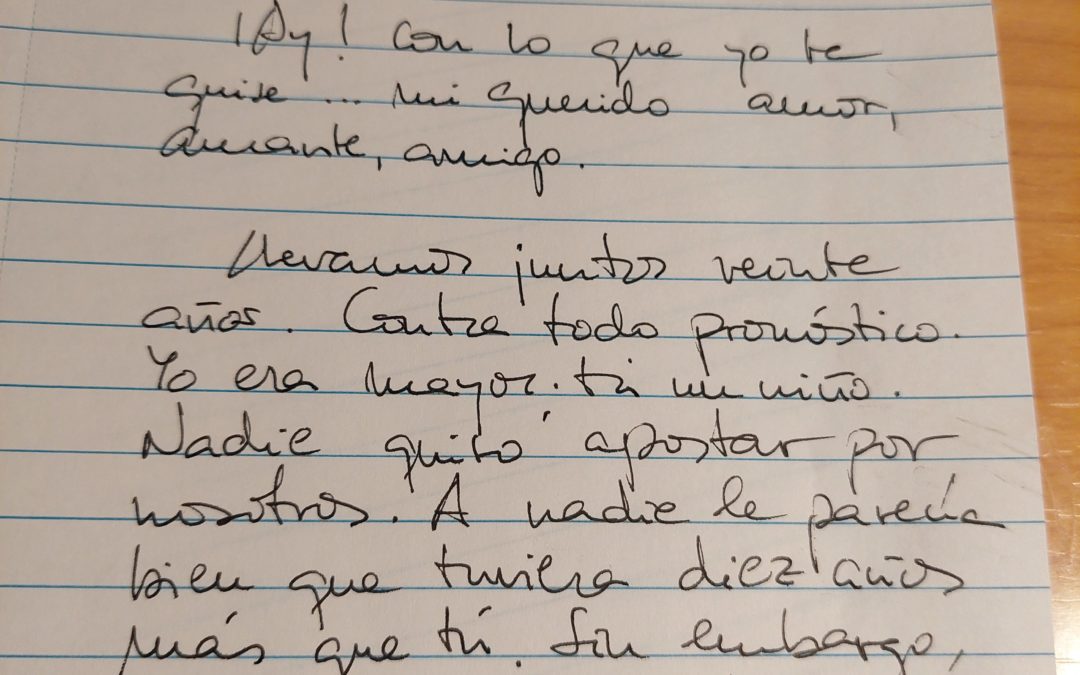 ¡Ay! Con lo que yo te
quise... mi querido amor,
amante, amigo.
Llevamos juntos veinte
años. Contra todo pronóstico.
Yo era mayor. tú un niño.
Nadie quiso apostar por
nosotros. A nadie le parecía
bien que tuviera diez años
más que tú. Sin embargo,